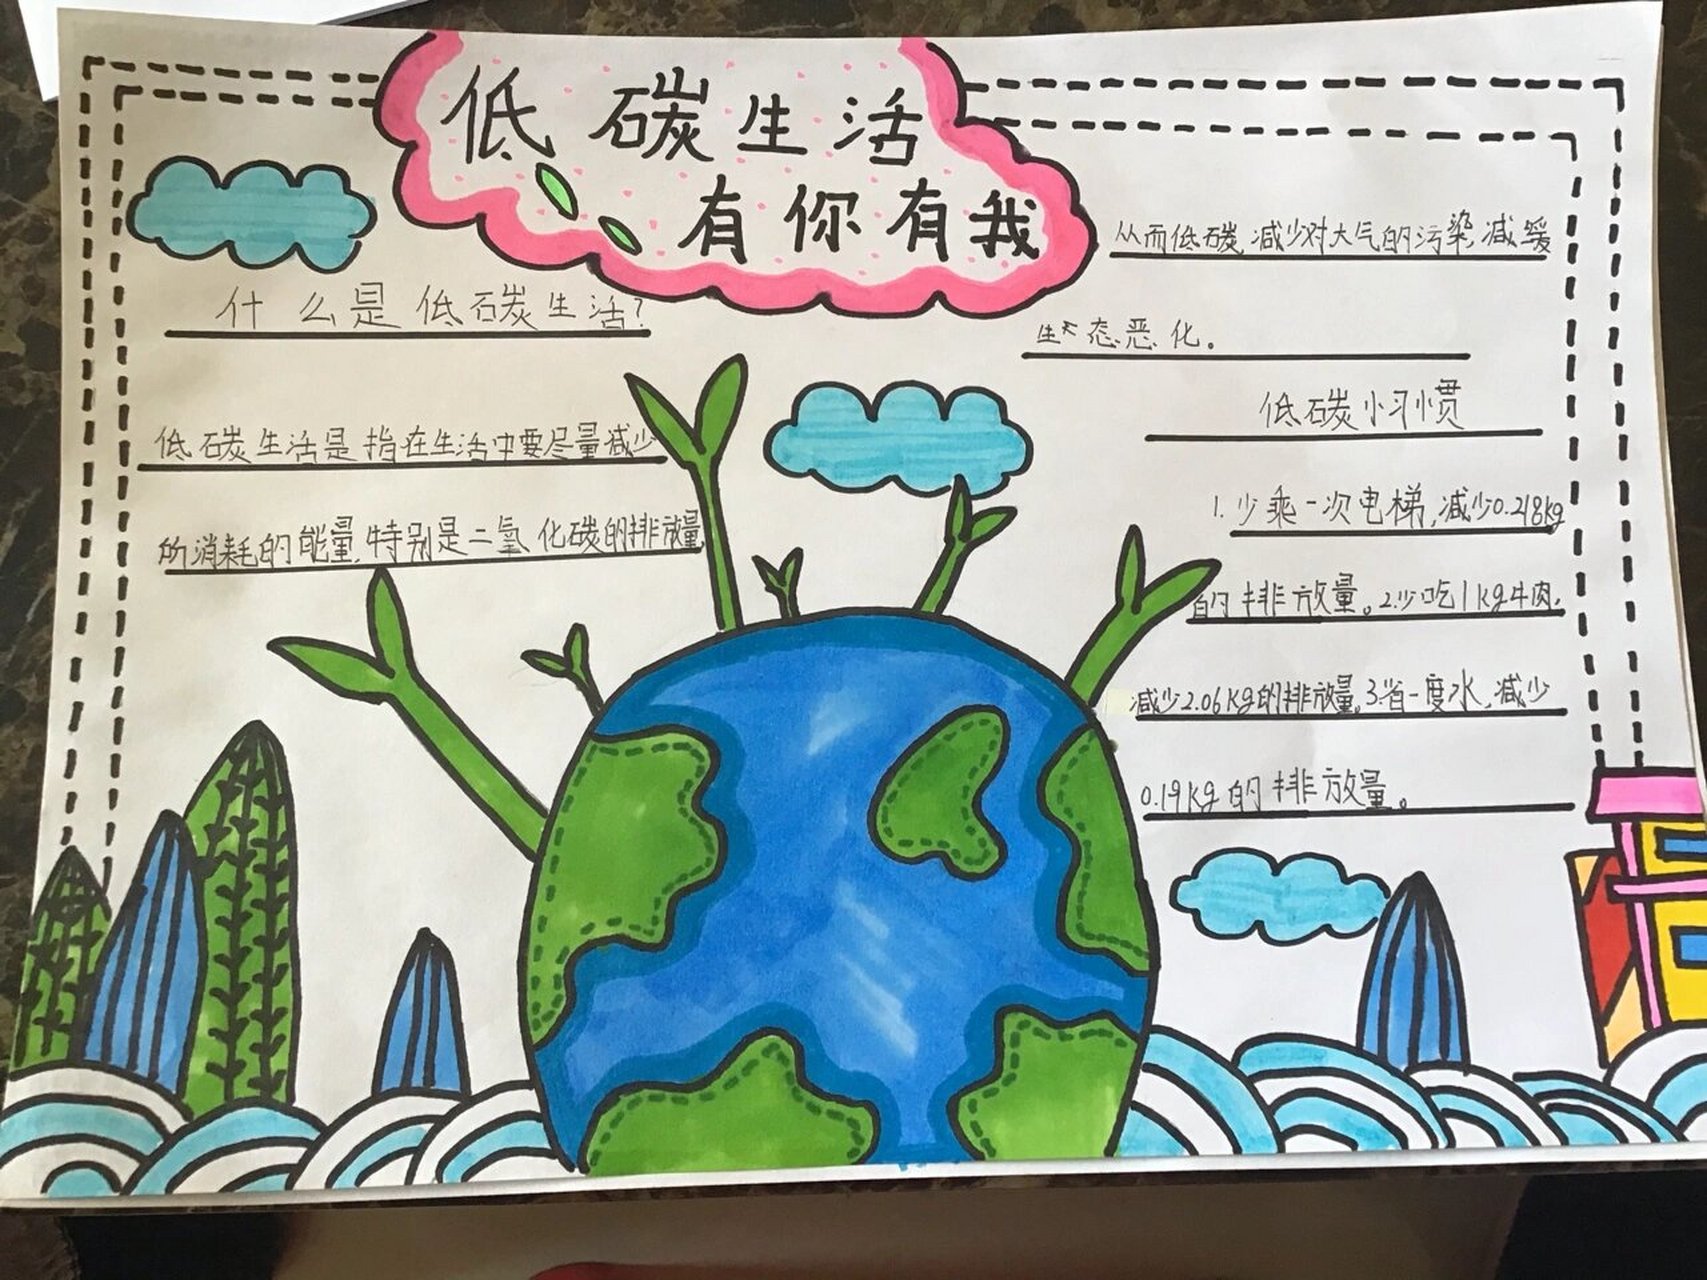 低碳生活
有你有我
什么是低碳生活?
低碳生活是指在生活中要尽量减少
所消耗的能量,特别是二氧化碳的排放量
从而低碳,减少对大气的污染,减缓
生态恶化。
低碳小习惯
1.少乘一次电梯,减少0.218kg
的排放量。2.少吃1kg牛肉,
减少2.06kg的排放量。3.省一度水,减少
0.19kg的排放量。